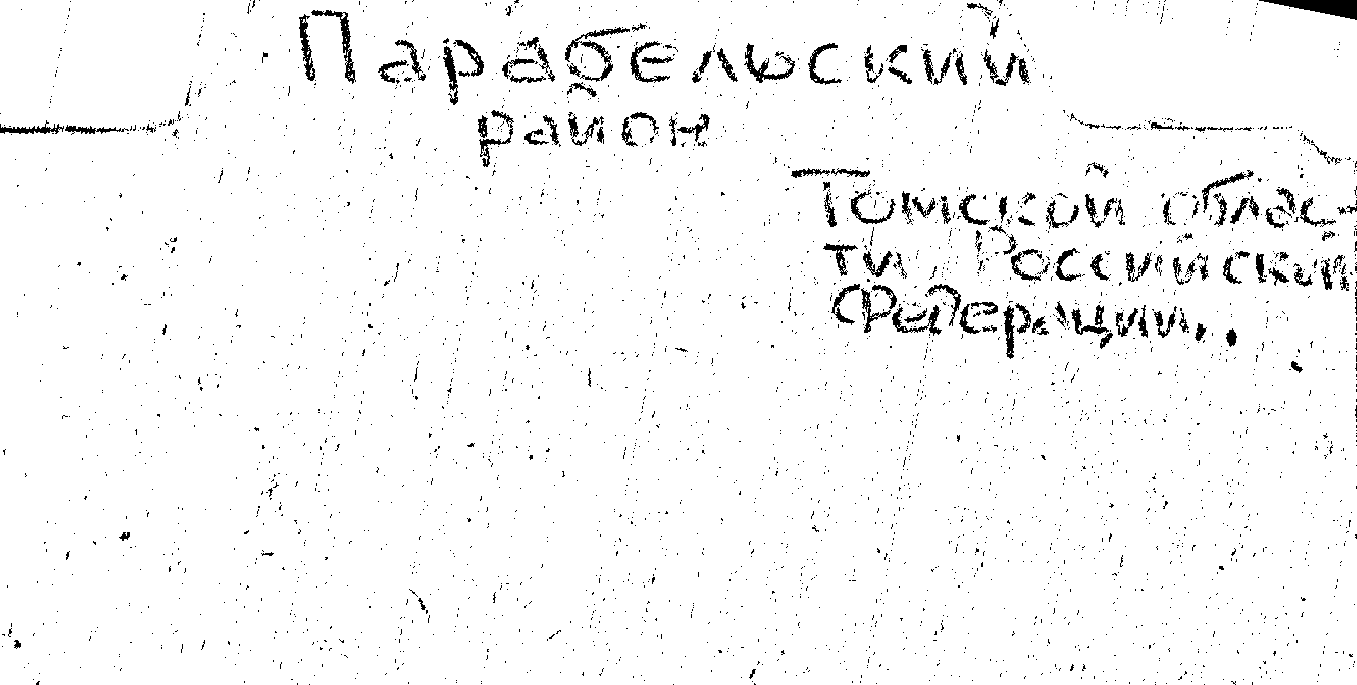 Парабельский
район
Томской облас-
ти Российской
Федерации..